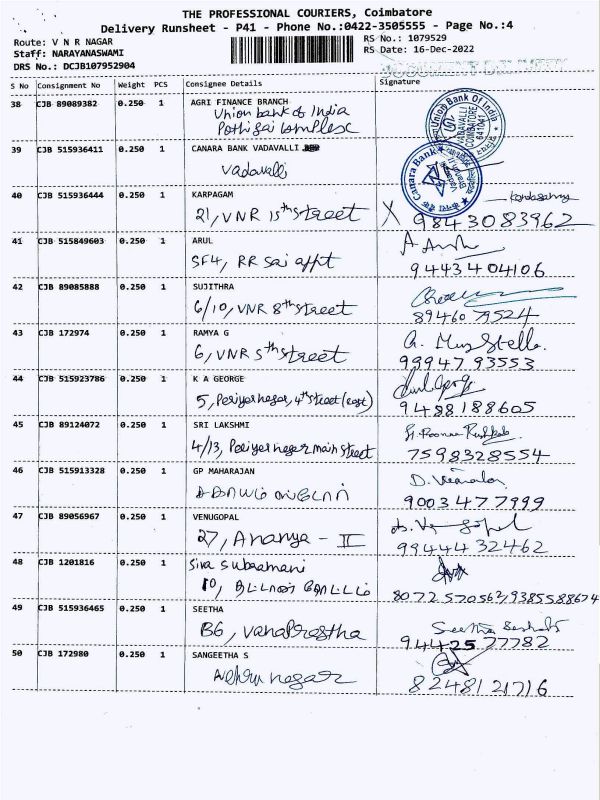 THE PROFESSIONAL COURIERS, Coimbatore
Delivery Runsheet - P41 - Phone No.:0422-3505555 - Page No.:4
Route: V N R NAGAR
RS No.: 1079529
Staff: NARAYANASWAMI
RS Date: 16-Dec-2022
DRS No.: DCJB107952904
S No Consignment No Weight PCS Consignee Details Signature
38 CJB 89089382 0.250 1 AGRI FINANCE BRANCH
Union bank of India
Pothigai Complex
Union Bank Of India
COIMBATORE
641041
39 CJB 515936411 0.250 1 CANARA BANK VADAVALLI
Vadavalli
Canara Bank
40 CJB 515936444 0.250 1 KARPAGAM
21, VNR 15th Street
9843083962
41 CJB 515849603 0.250 1 ARUL
SF4, RR Sai appt
9443404106
42 CJB 89085888 0.250 1 SUJITHRA
6/10, VNR 8th Street
8946079524
43 CJB 172974 0.250 1 RAMYA G
6, VNR 5th Street
9994793553
44 CJB 515923786 0.250 1 K A GEORGE
5, Periyar nagar, 4th Street (east)
9488188605
45 CJB 89124072 0.250 1 SRI LAKSHMI
4/13, Periyer nager main street
7598328554
46 CJB 515913328 0.250 1 GP MAHARAJAN
9003477999
47 CJB 89056967 0.250 1 VENUGOPAL
27, Ananya - II
9944432462
48 CJB 1201816 0.250 1 Siva Subramani
10,
8072570562, 9385588674
49 CJB 515936465 0.250 1 SEETHA
B6, Vanaprastha
Seetha
9442577782
50 CJB 172980 0.250 1 SANGEETHA S
Nehru nagar
8248121716